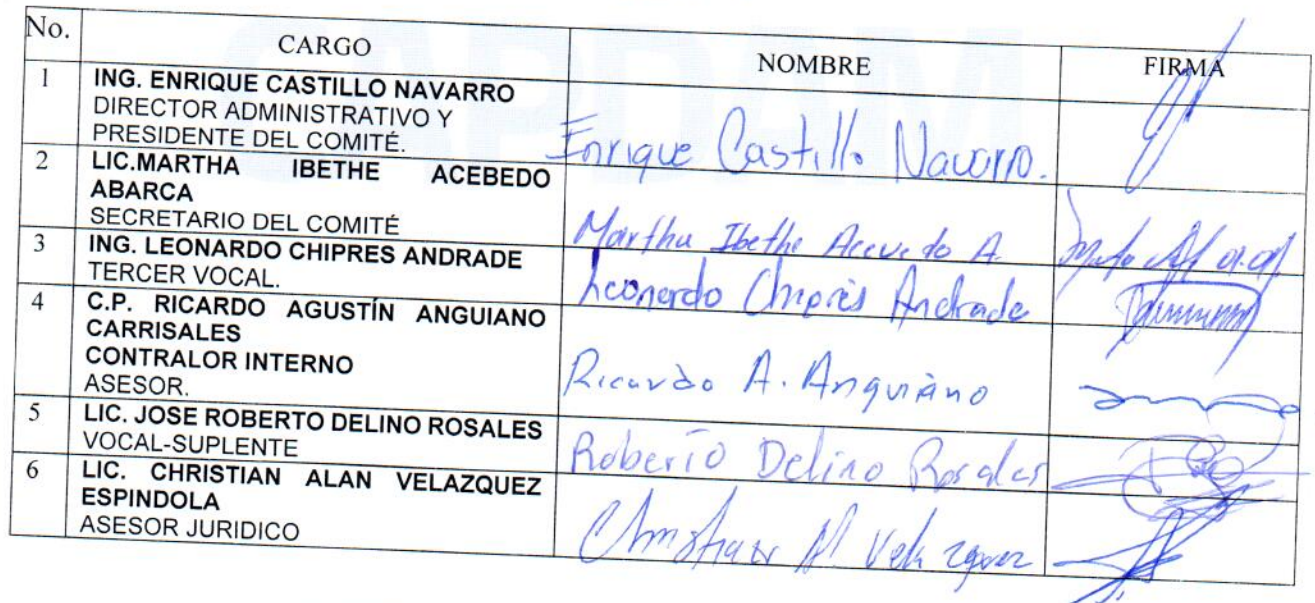 No. CARGO NOMBRE FIRMA
1 ING. ENRIQUE CASTILLO NAVARRO
DIRECTOR ADMINISTRATIVO Y
PRESIDENTE DEL COMITÉ.
Enrique Castillo Navarro.
2 LIC.MARTHA IBETHE ACEBEDO
ABARCA
SECRETARIO DEL COMITÉ
Martha Ibethe Acevedo A.
3 ING. LEONARDO CHIPRES ANDRADE
TERCER VOCAL.
Leonardo Chiprés Andrade
4 C.P. RICARDO AGUSTÍN ANGUIANO
CARRISALES
CONTRALOR INTERNO
ASESOR.
Ricardo A. Anguiano
5 LIC. JOSE ROBERTO DELINO ROSALES
VOCAL-SUPLENTE
Roberto Delino Rosales
6 LIC. CHRISTIAN ALAN VELAZQUEZ
ESPINDOLA
ASESOR JURIDICO
Christian A. Velazquez